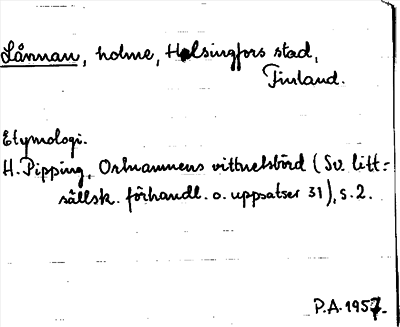 Lånnan, holme, Helsingfors stad,
Finland.
Etymologi.
H. Pipping, Ortnamnens vittnesbörd (Sv. litt=
sällsk. förhandl. o. uppsatser 31), s. 2.
P.A. 1957.